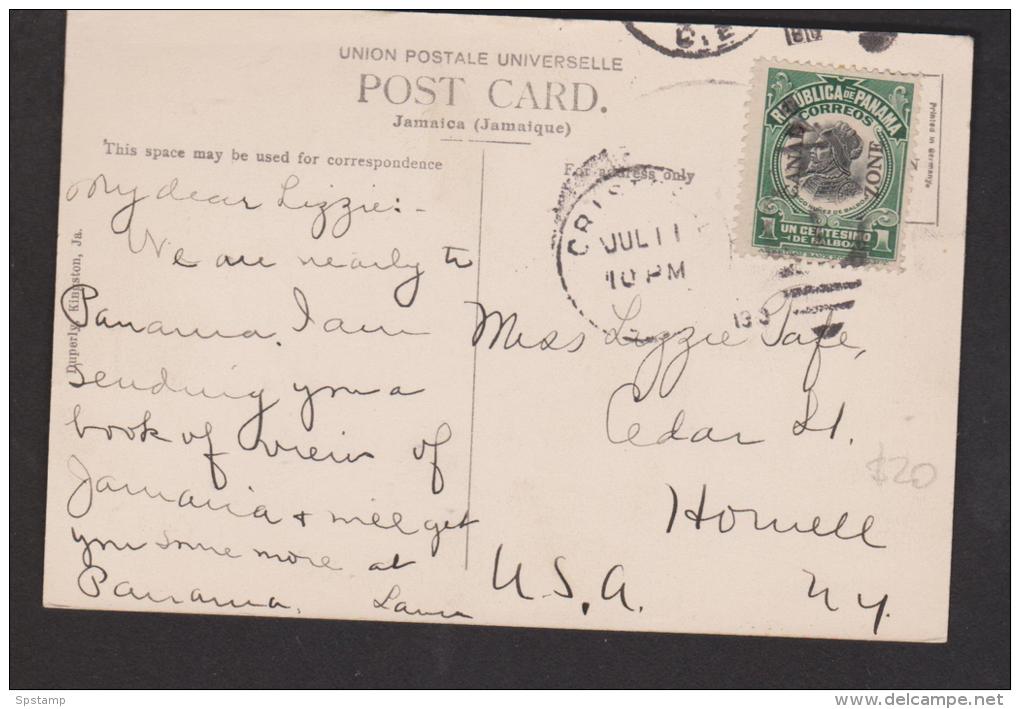 C.Z.
UNION POSTALE UNIVERSELLE
POST CARD.
Jamaica (Jamaique)
This space may be used for correspondence
For address only
REPUBLICA DE PANAMA
CORREOS
CANAL
ZONE
1 UN CENTESIMO 1
DE BALBOA
Printed in Germany.
CRIST
JUL 11
10 PM
Duperly, Kingston, Ja.
My dear Lizzie:-
We are nearly to
Panama. I am
sending you a
book of views of
Jamaica & will get
you some more at
Panama. Laura
Miss Lizzie Tafe,
Cedar St.
Hornell
U.S.A. N.Y.
$20
Spstamp
www.delcampe.net